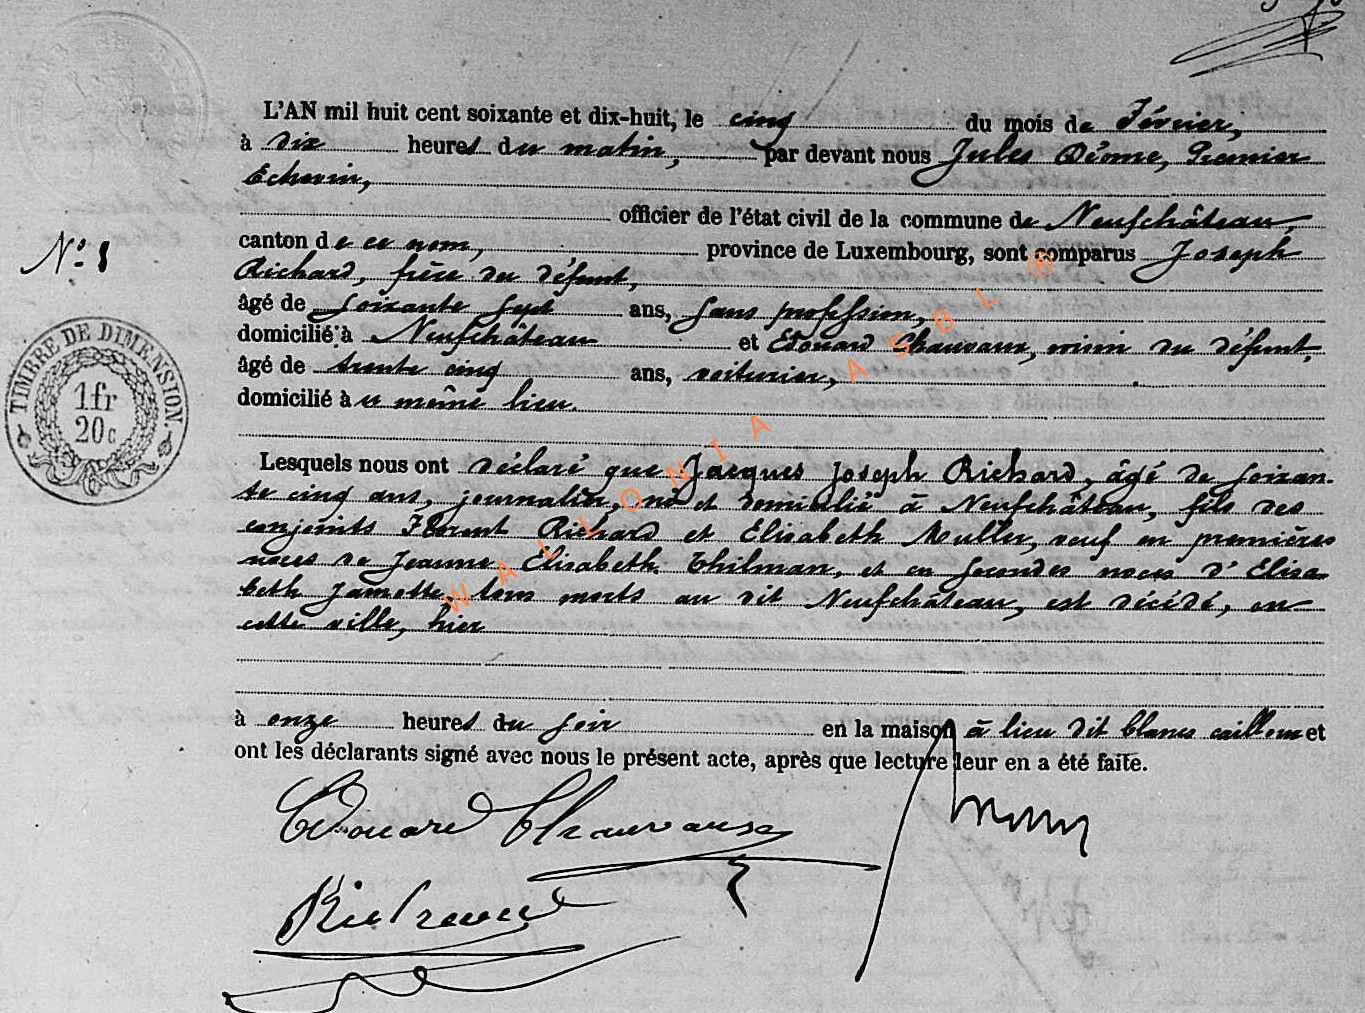 L'AN mil huit cent soixante et dix-huit, le cinq du mois de Février,
à dix heures du matin, par devant nous Jules Déome, Premier
Echevin,
officier de l'état civil de la commune de Neufchâteau,
N° 8
canton de ce nom, province de Luxembourg, sont comparus Joseph
Richard, frère du défunt,
âgé de soixante sept ans, sans profession,
domicilié à Neufchâteau et Edouard Chauvaux, voisin du défunt,
âgé de trente cinq ans, voiturier,
domicilié au même lieu.
TIMBRE DE DIMENSION.
1 fr
20 c
Lesquels nous ont déclaré que Jacques Joseph Richard, âgé de soixan-
te cinq ans, journalier, né et domicilié à Neufchâteau, fils des
conjoints Florent Richard et Elisabeth Muller, veuf en premières
noces de Jeanne Elisabeth Thilman, et en secondes noces d'Elisa-
beth Jamotte, tous morts au dit Neufchâteau, est décédé, en
cette ville, hier
à onze heures du soir en la maison à lieu dit blancs cailloux et
ont les déclarants signé avec nous le présent acte, après que lecture leur en a été faite.
Edouard Chauvaux
Richard
WALLONIA ASBL ®